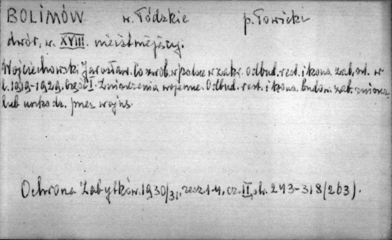 BOLIMÓW w. Łódzkie p. Łowicki
dwór, w. XVIII. nieistniejący.
Wojciechowski Jarosław. Co zrob. w Polsce w zakr. Odbud. rest. i kons. zab. ar. w
l. 1919-1929. Część I. Zniszczenia wojenne. Odbud. rest. i kons. budow. zab. zniszcz.
lub uszkodz. przez wojnę
Ochrona Zabytków. 1930/31, zesz 1-4, cz. II, st. 243-318 (263).